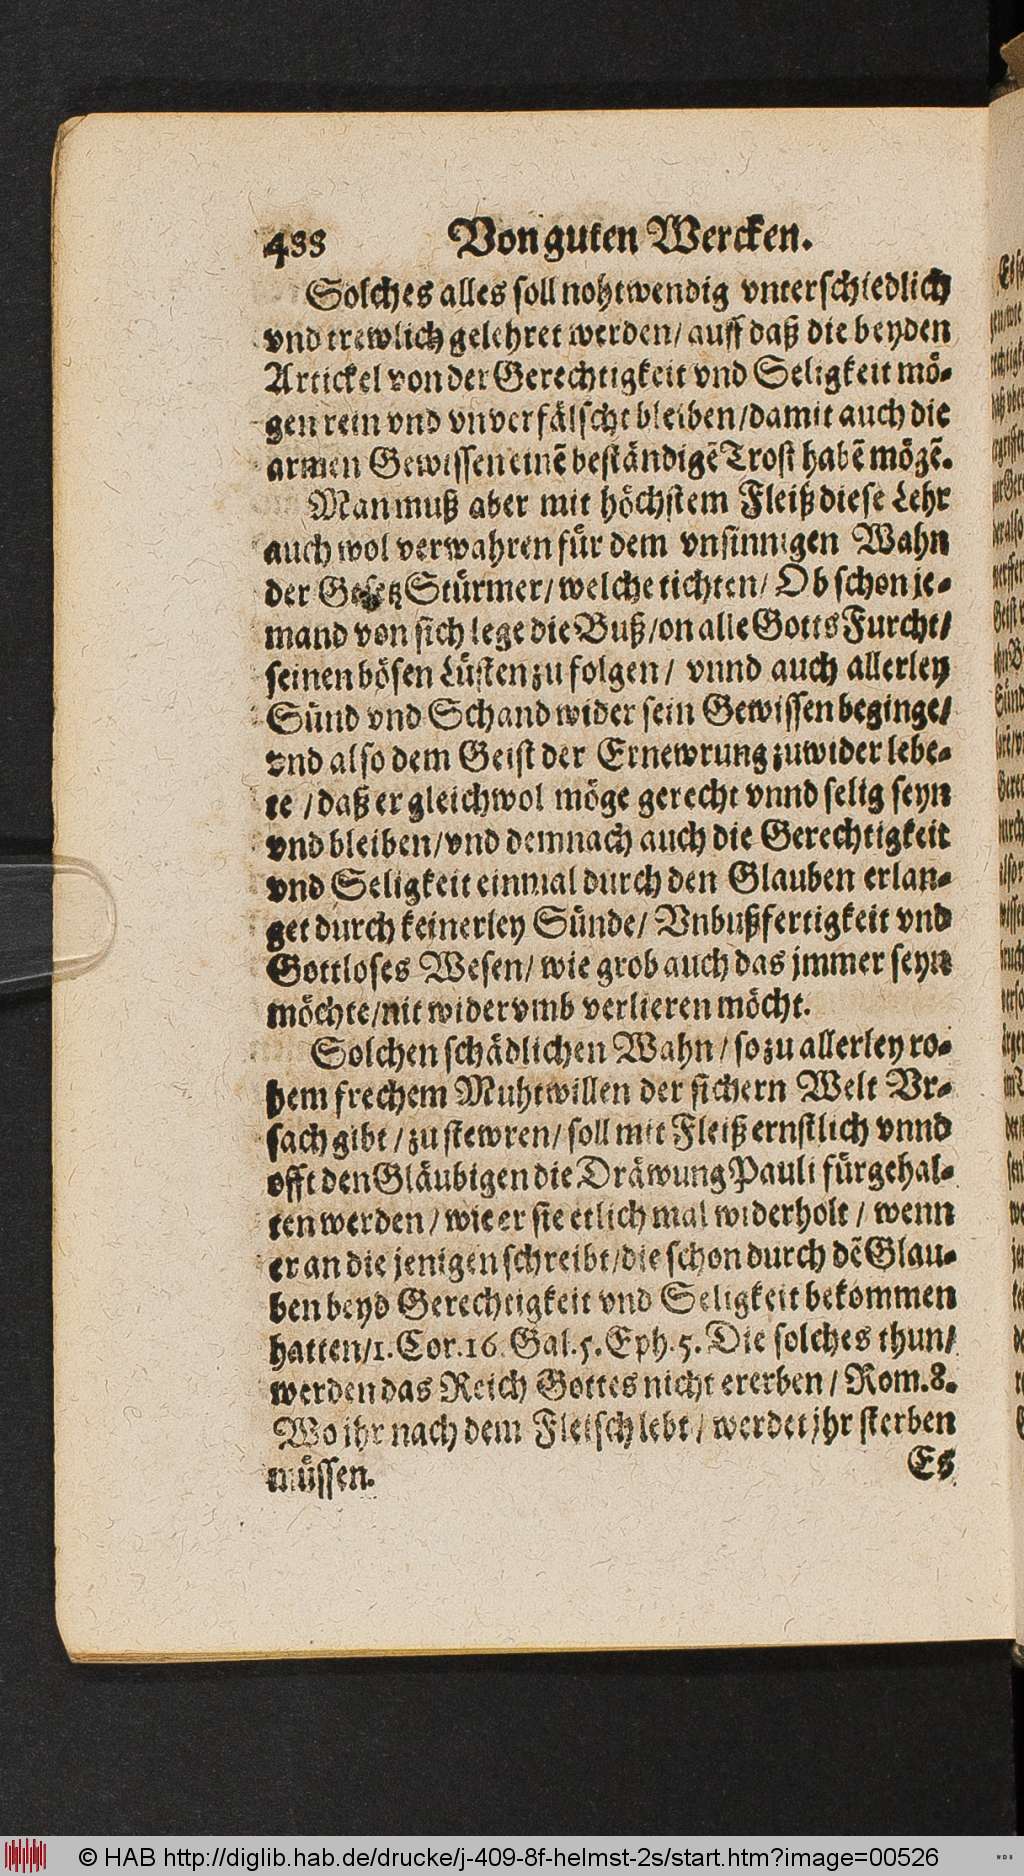 488 Von guten Wercken.
Solches alles soll nohtwendig vnterschiedlich
vnd trewlich gelehret werden/ auff daß die beyden
Artickel von der Gerechtigkeit vnd Seligkeit mö-
gen rein vnd vnverfälscht bleiben/damit auch die
armen Gewissen einē beständigē Trost habē mögē.
Man muß aber mit höchstem Fleiß diese Lehr
auch wol verwahren für dem vnsinnigen Wahn
der Gesetz Stürmer/ welche tichten/ Ob schon je-
mand von sich lege die Buß/on alle Gotts Furcht/
seinen bösen Lüsten zu folgen/ vnnd auch allerley
Sünd vnd Schand wider sein Gewissen beginge/
vnd also dem Geist der Ernewrung zuwider lebe-
te /daß er gleichwol möge gerecht vnnd selig seyn
vnd bleiben/vnd demnach auch die Gerechtigkeit
vnd Seligkeit einmal durch den Glauben erlan-
get durch keinerley Sünde/ Vnbußfertigkeit vnd
Gottloses Wesen/ wie grob auch das jmmer seyn
möchte/nit widervmb verlieren möcht.
Solchen schädlichen Wahn/ so zu allerley ro-
hem frechem Muhtwillen der sichern Welt Vr-
sach gibt /zu stewren/ soll mit Fleiß ernstlich vnnd
offt den Gläubigen die Dräwung Pauli fürgehal-
ten werden/ wie er sie etlich mal widerholt/ wenn
er an die jenigen schreibt/die schon durch dē Glau-
ben beyd Gerechtigkeit vnd Seligkeit bekommen
hatten/1. Cor. 16. Gal. 5. Eph. 5. Die solches thun/
werden das Reich Gottes nicht ererben/ Rom. 8.
Wo ihr nach dem Fleisch lebt/ werdet jhr sterben
müssen.
Es
© HAB http://diglib.hab.de/drucke/j-409-8f-helmst-2s/start.htm?image=00526